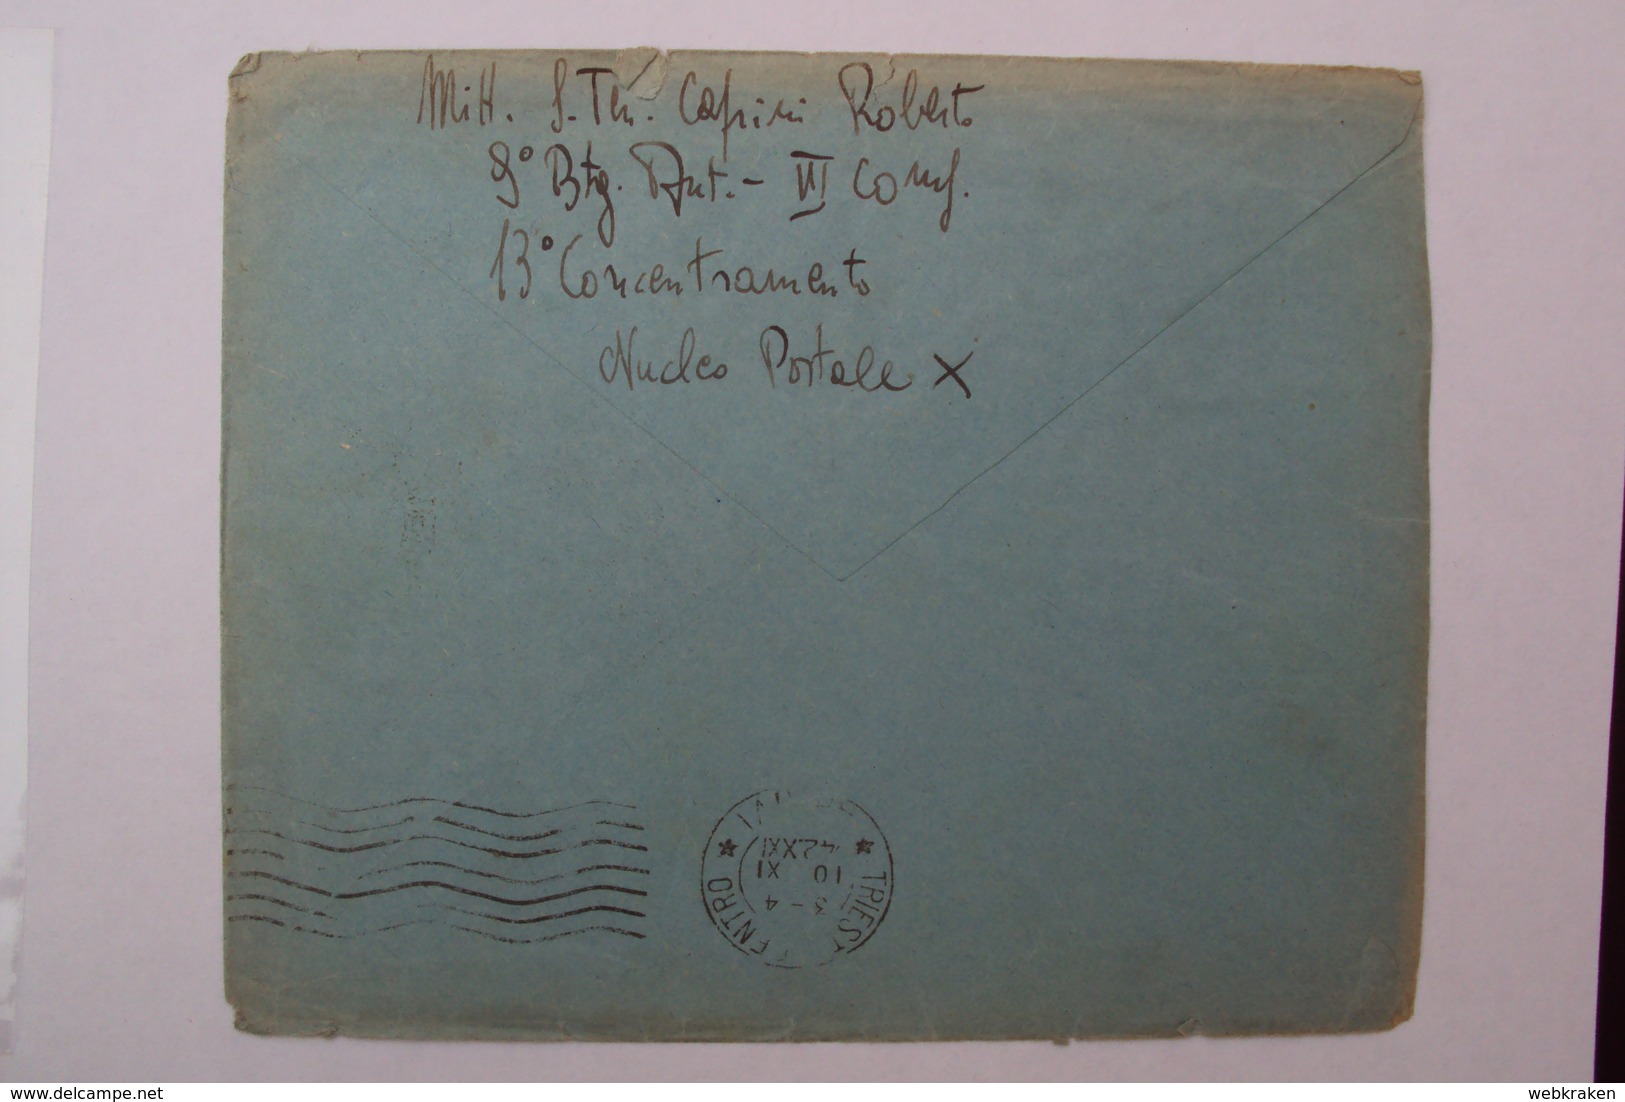 Mitt. S. Ten. Caprini Roberto
9° Btg. Aut. - VII Comp.
13° Concentramento
Nucleo Postale X
TRIESTE CENTRO
3-4
10 XI
42.XXI
www.delcampe.net
webkraken